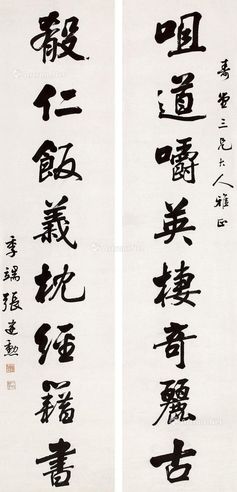 壽三兄大人雅正
咀道嚼英棲奇麗古
殽仁飯義枕經籍書
季端張建勳